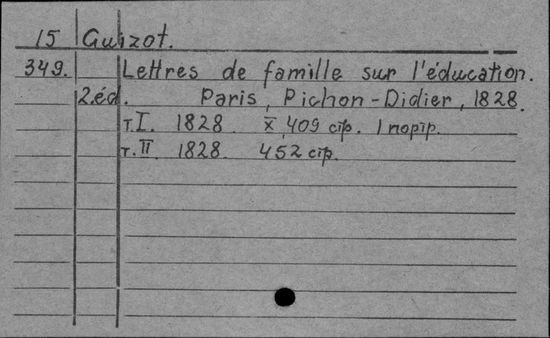 15 Guizot.
349. Lettres de famille sur l'éducation.
2.éd. Paris, Pichon-Didier, 1828.
т.I. 1828 X, 409 стр. 1 портр.
т.II. 1828. 452 стр.